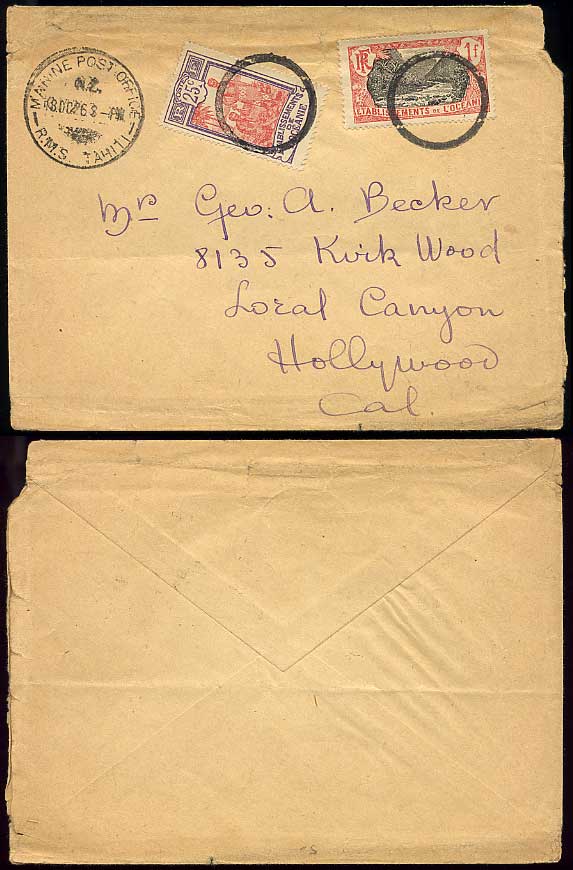 MARINE POST OFFICE
N.Z.
R.M.S. TAHITI
25c
ÉTABLISSEMENTS
DE
L'OCÉANIE
RF
1f
ÉTABLISSEMENTS DE L'OCÉANIE
Mr Geo. A. Becker
8135 Kirk Wood
Loral Canyon
Hollywood
Cal.